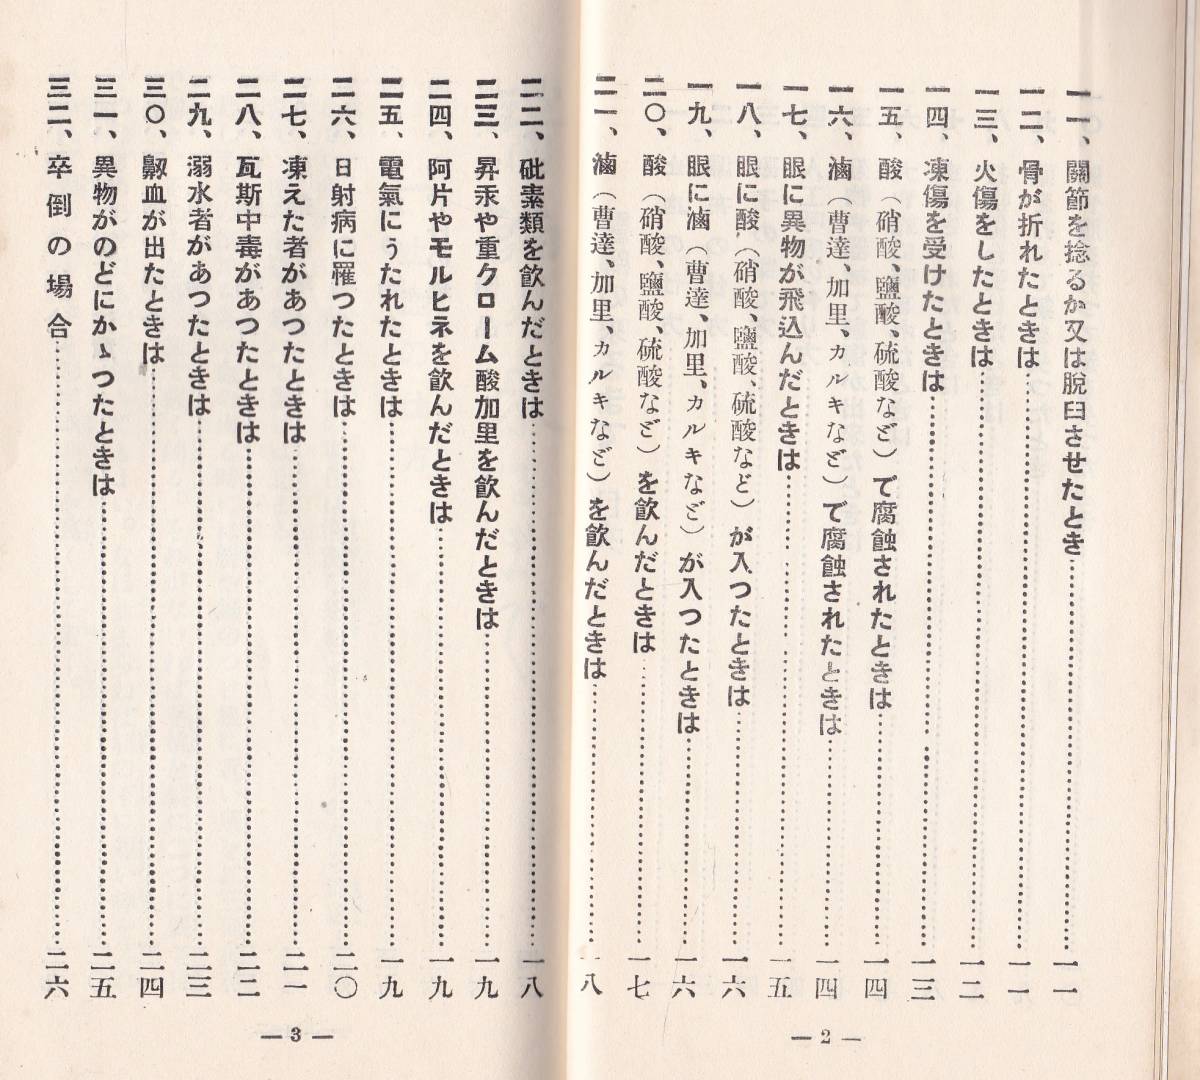 一一、關節を捻るか又は脫臼させたとき……………一一
一二、骨が折れたときは……………一一
一三、火傷をしたときは……………一二
一四、凍傷を受けたときは……………一三
一五、酸（硝酸、鹽酸、硫酸など）で腐蝕されたときは……………一四
一六、滷（曹達、加里、カルキなど）で腐蝕されたときは……………一四
一七、眼に異物が飛込んだときは……………一五
一八、眼に酸（硝酸、鹽酸、硫酸など）が入つたときは……………一六
一九、眼に滷（曹達、加里、カルキなど）が入つたときは……………一六
二〇、酸（硝酸、鹽酸、硫酸など）を飮んだときは……………一七
二一、滷（曹達、加里、カルキなど）を飮んだときは……………一八
— 2 —
二二、砒素類を飮んだときは……………一八
二三、昇汞や重クローム酸加里を飮んだときは……………一九
二四、阿片やモルヒネを飮んだときは……………一九
二五、電氣にうたれたときは……………一九
二六、日射病に罹つたときは……………二〇
二七、凍えた者があつたときは……………二一
二八、瓦斯中毒があつたときは……………二二
二九、溺水者があつたときは……………二三
三〇、衂血が出たときは……………二四
三一、異物がのどにかゝつたときは……………二五
三二、卒倒の場合……………二六
— 3 —